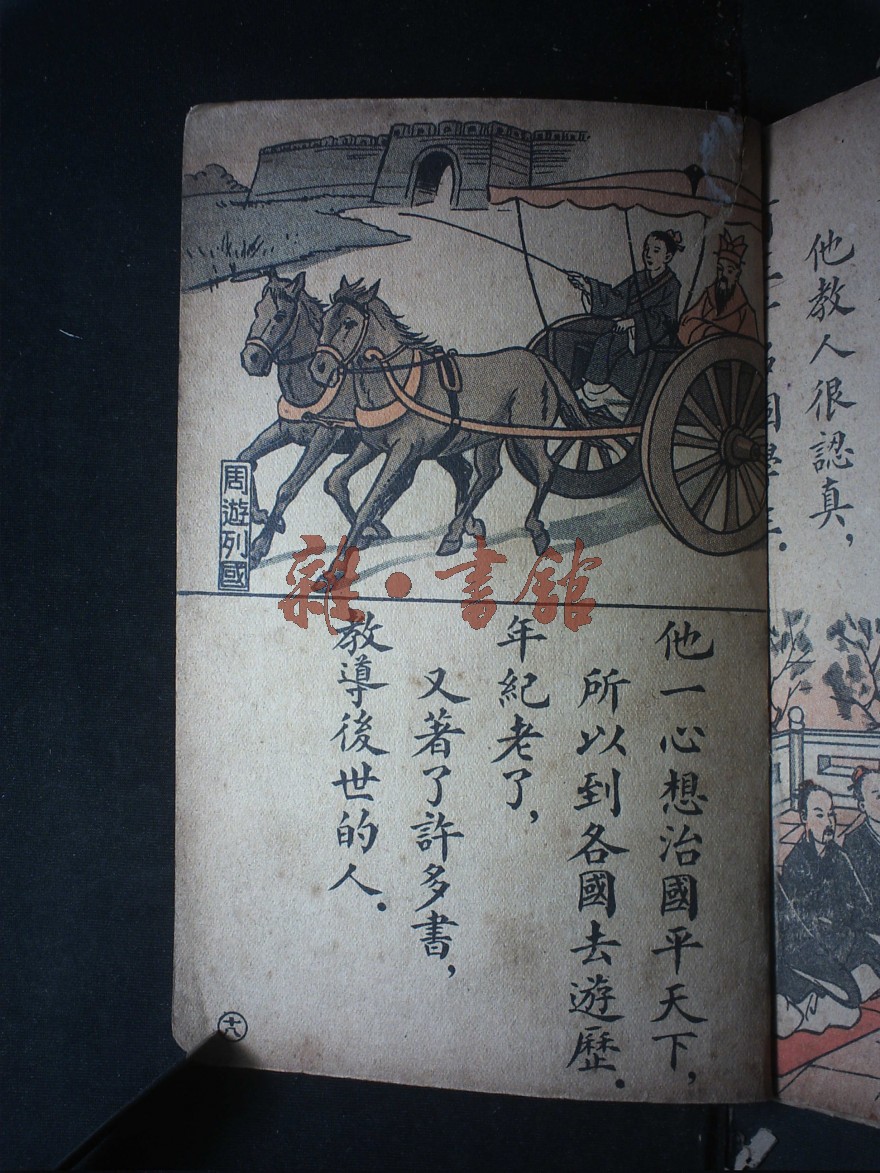 他教人很認真，
周遊列國
雜·書館
他一心想治國平天下，
所以到各國去遊歷．
年紀老了，
又著了許多書，
教導後世的人．
十八